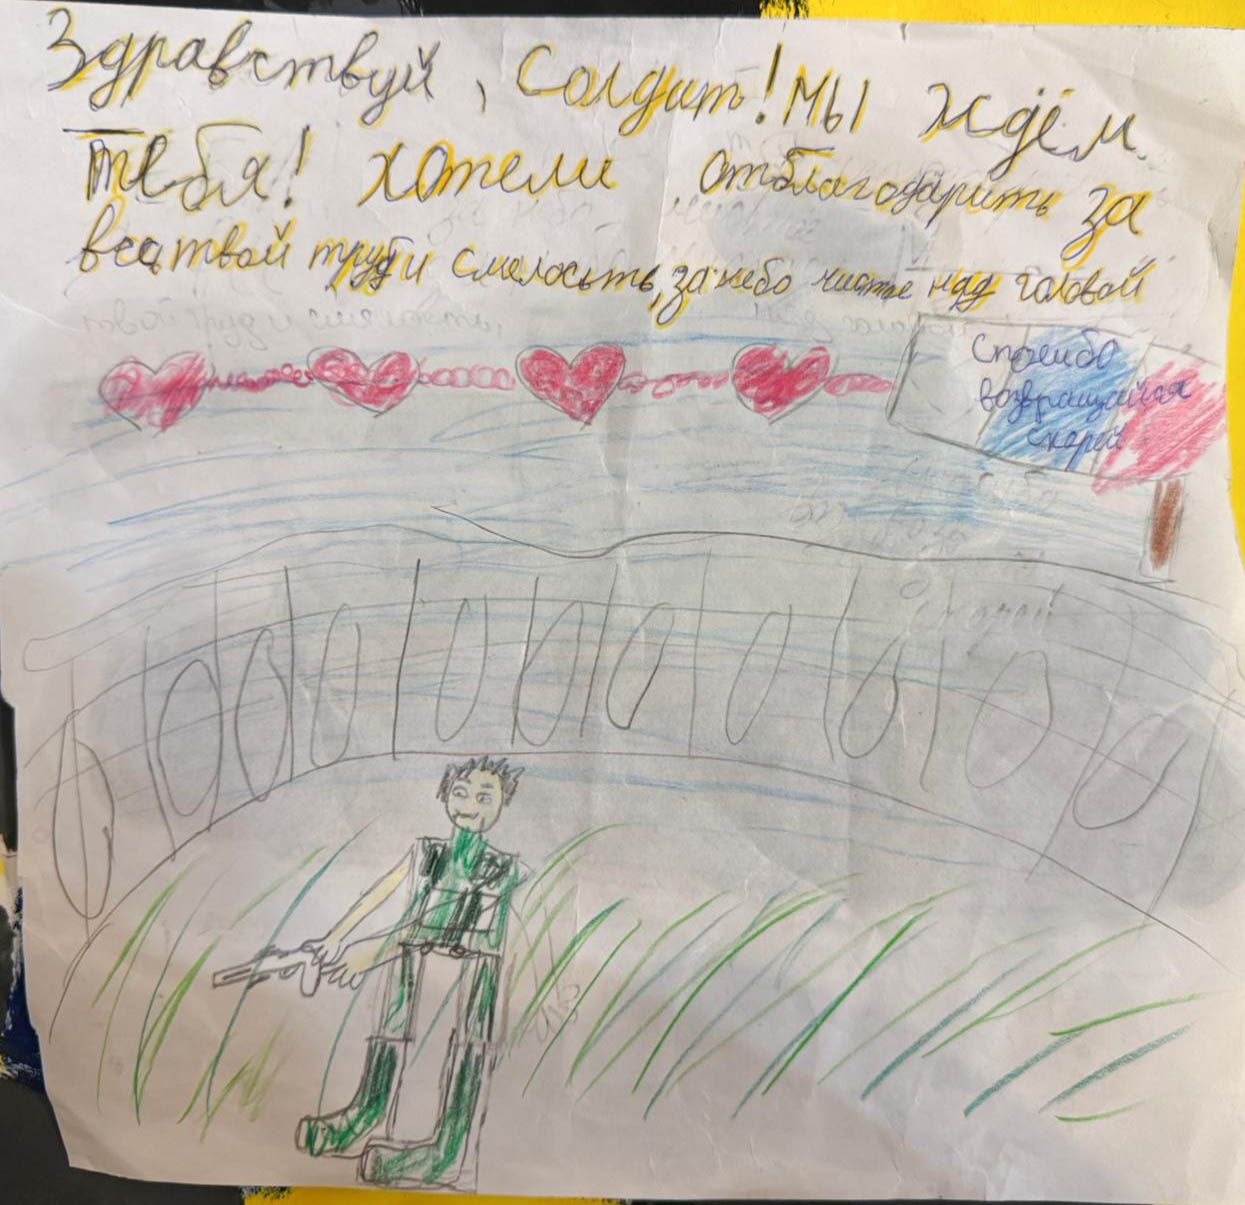 Здравствуй, Солдат! Мы ждём
тебя! хотели отблагодарить за
весь твой труд и смелосьть, за небо чистое над головой
Спасибо
возвращайся
скорей